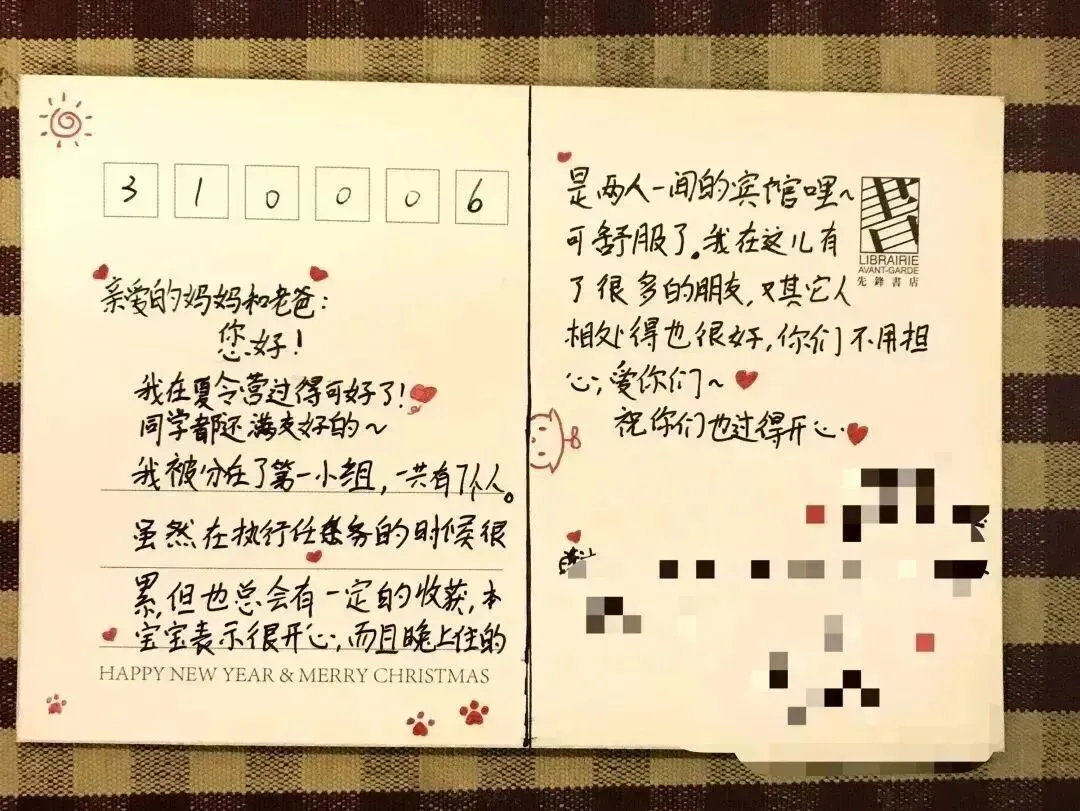 3 1 0 0 0 6
亲爱的妈妈和老爸：
您好！
我在夏令营过得可好了！
同学都还满友好的～
我被分在了第一小组，一共有7个人。
虽然在执行任务的时候很
累，但也总会有一定的收获，本
宝宝表示很开心，而且晚上住的
HAPPY NEW YEAR & MERRY CHRISTMAS
是两人一间的宾馆哩～
可舒服了。我在这儿有
了很多的朋友，又其它人
相处得也很好，你们不用担
心，爱你们～
祝你们也过得开心
書
LIBRAIRIE
AVANT-GARDE
先鋒書店